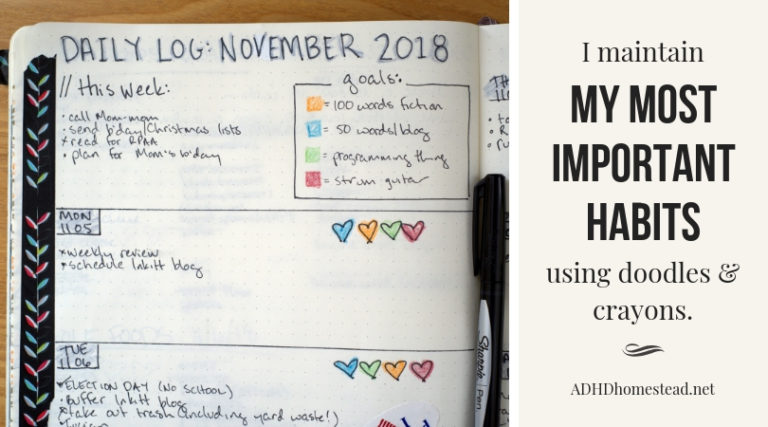 DAILY LOG: NOVEMBER 2018
// this week:
· call Mom-mom
· send b'day/Christmas lists
x read for RPAA
· plan for Mom's b'day
goals:
= 100 words fiction
= 50 words/blog
= programming thing
= strum guitar
MON
11 05
x weekly review
x schedule Inkitt blog
TUE
11 06
x ELECTION DAY (NO SCHOOL)
x Buffer Inkitt blog
x take out trash (including yard waste!)
Sharpie
Pen
I maintain
MY MOST
IMPORTANT
HABITS
using doodles &
crayons.
ADHDhomestead.net